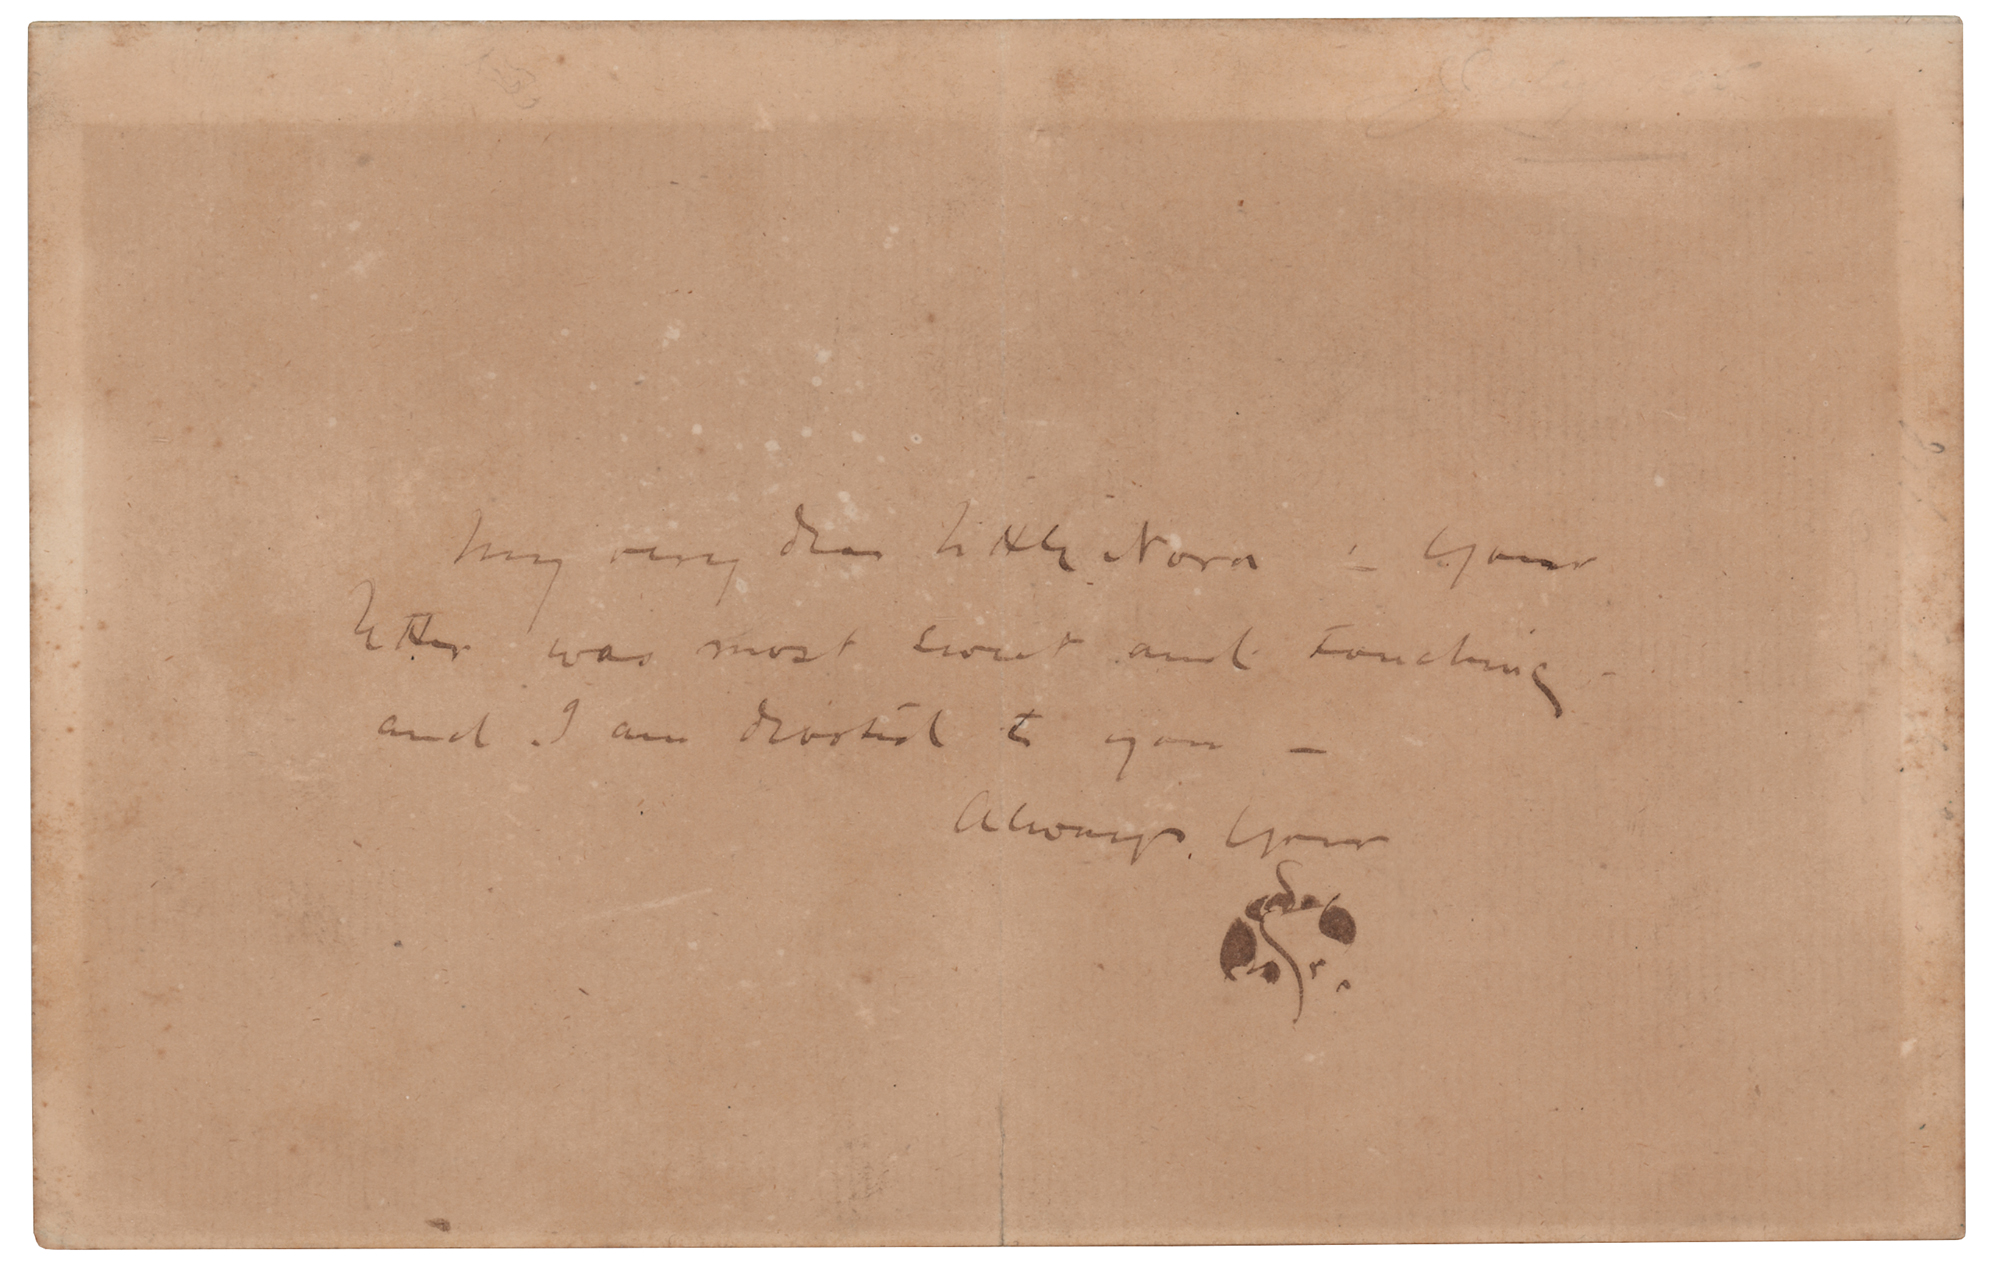 My very dear little Nora – Your
letter was most sweet and touching –
and I am devoted to you –
Always Your